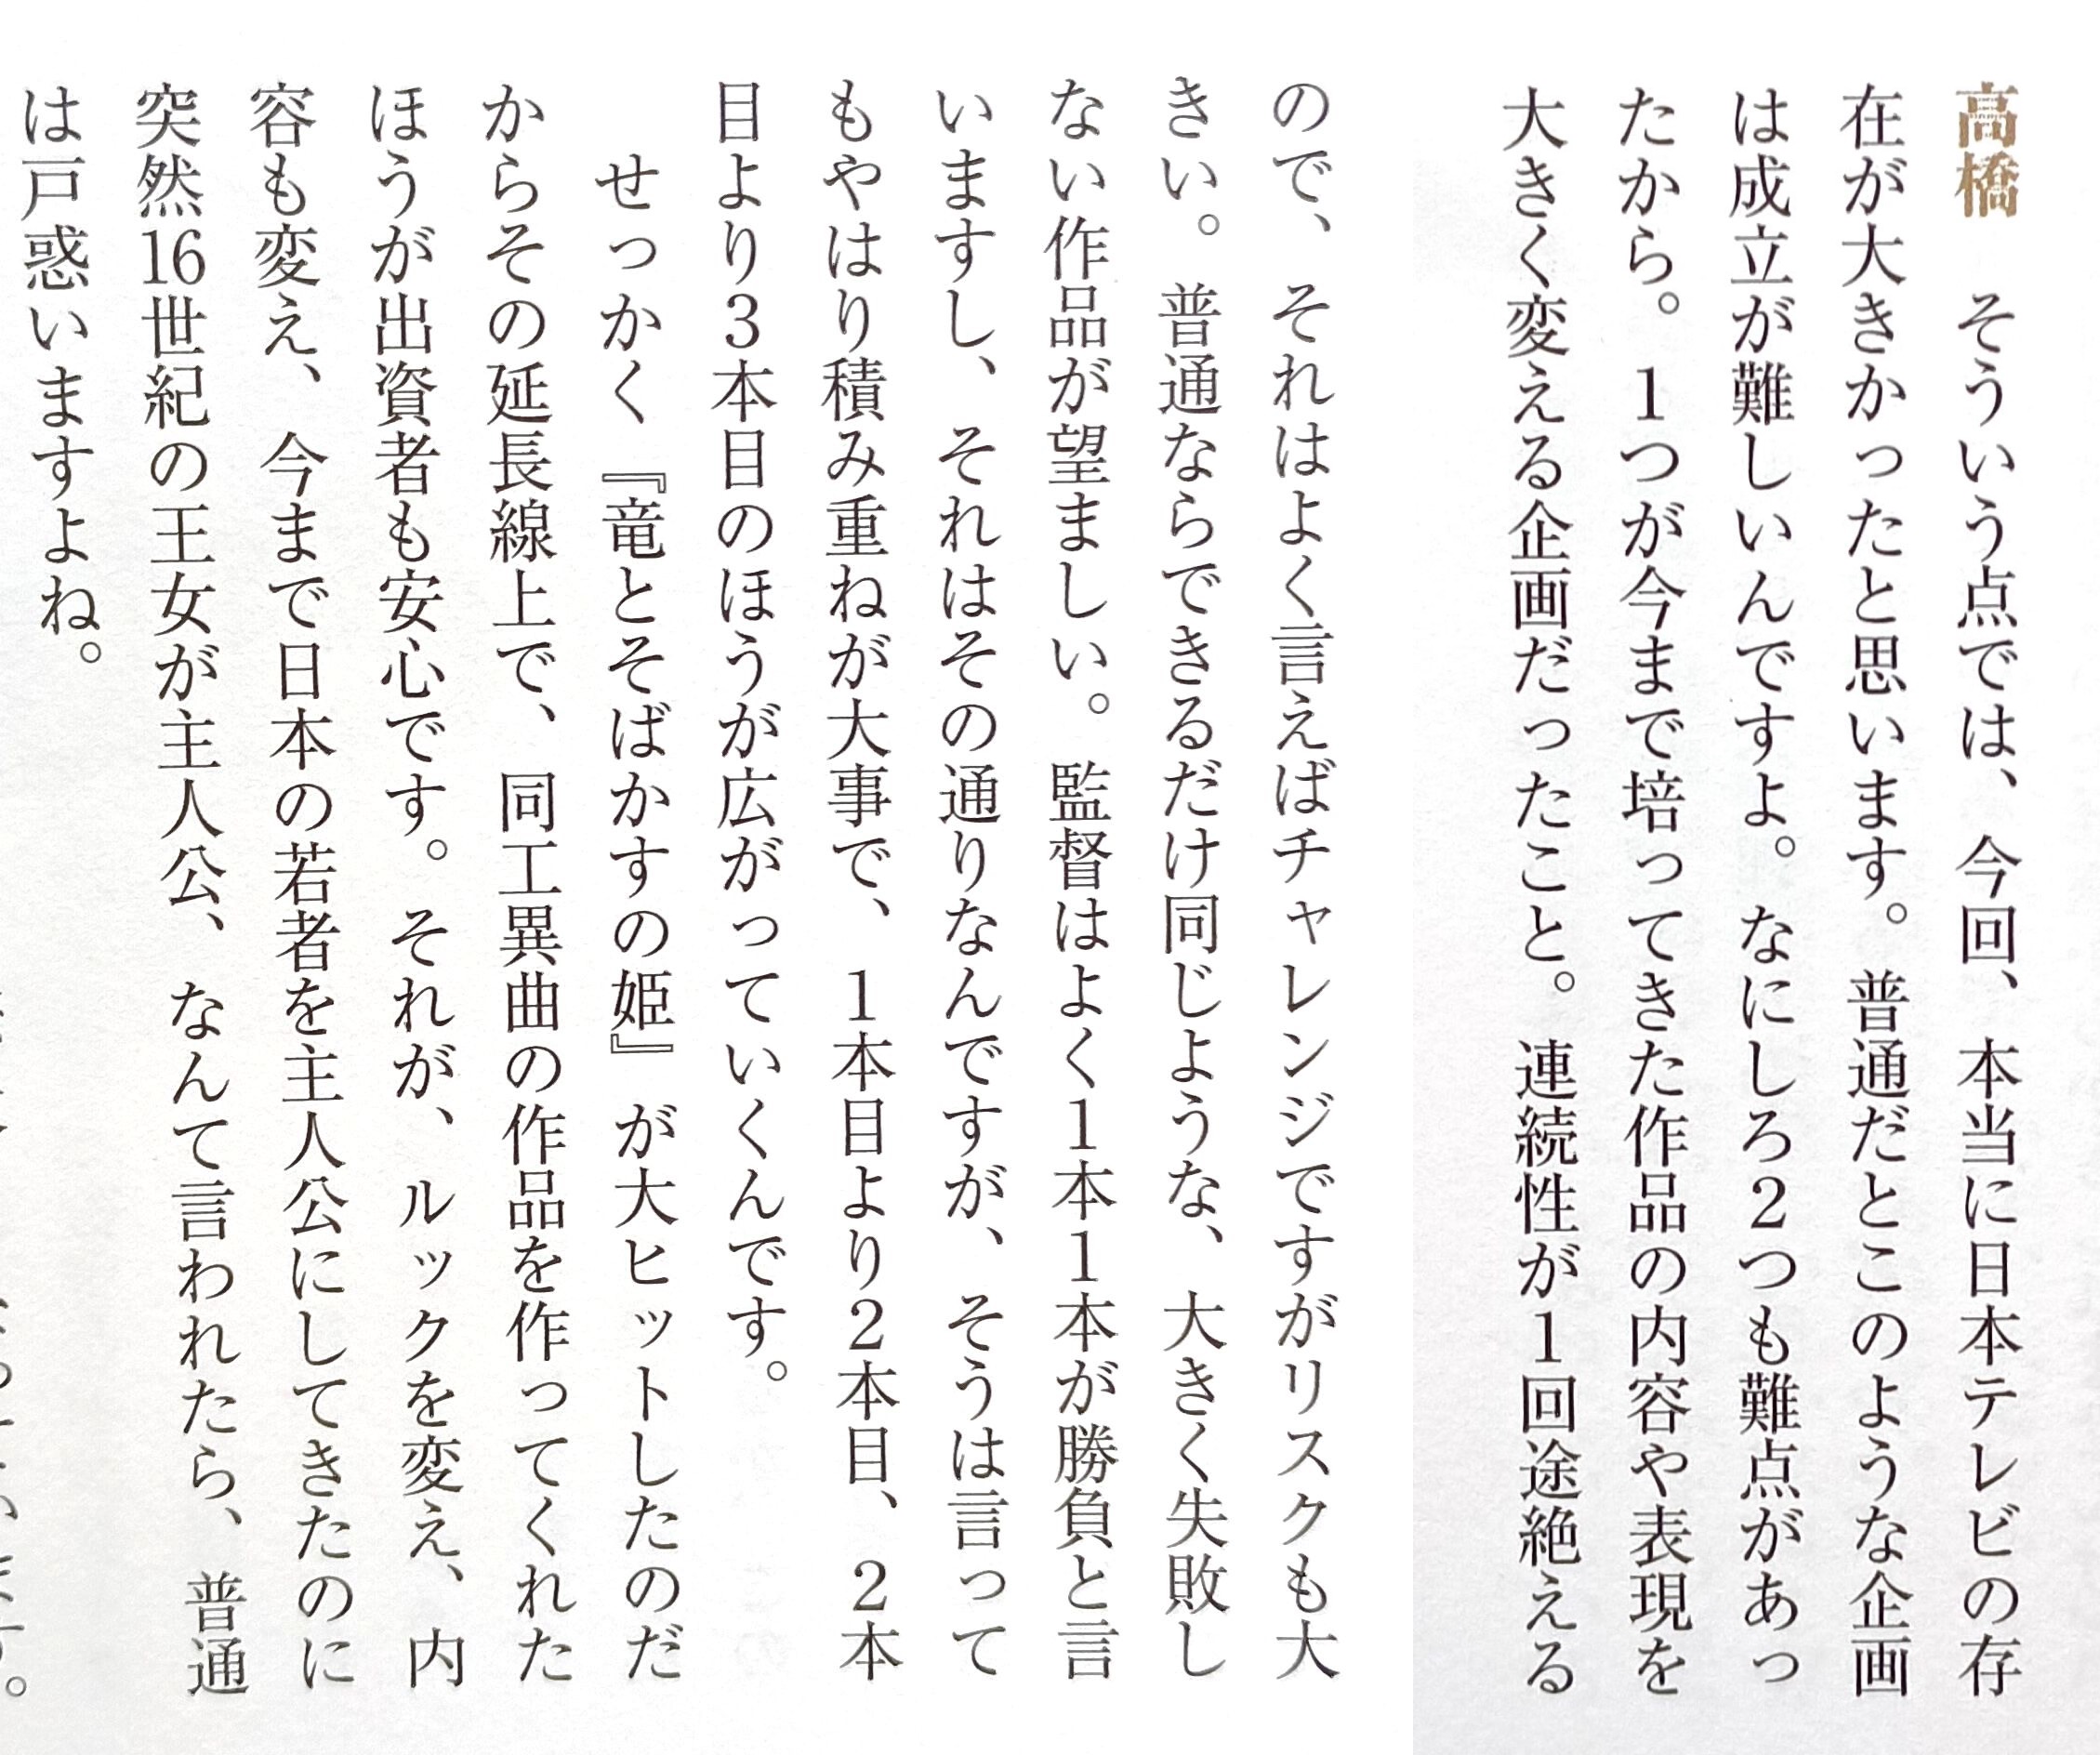 高橋　そういう点では、今回、本当に日本テレビの存
在が大きかったと思います。普通だとこのような企画
は成立が難しいんですよ。なにしろ2つも難点があっ
たから。1つが今まで培ってきた作品の内容や表現を
大きく変える企画だったこと。連続性が1回途絶える
ので、それはよく言えばチャレンジですがリスクも大
きい。普通ならできるだけ同じような、大きく失敗し
ない作品が望ましい。監督はよく1本1本が勝負と言
いますし、それはその通りなんですが、そうは言って
もやはり積み重ねが大事で、1本目より2本目、2本
目より3本目のほうが広がっていくんです。
　せっかく『竜とそばかすの姫』が大ヒットしたのだ
からその延長線上で、同工異曲の作品を作ってくれた
ほうが出資者も安心です。それが、ルックを変え、内
容も変え、今まで日本の若者を主人公にしてきたのに
突然16世紀の王女が主人公、なんて言われたら、普通
は戸惑いますよね。